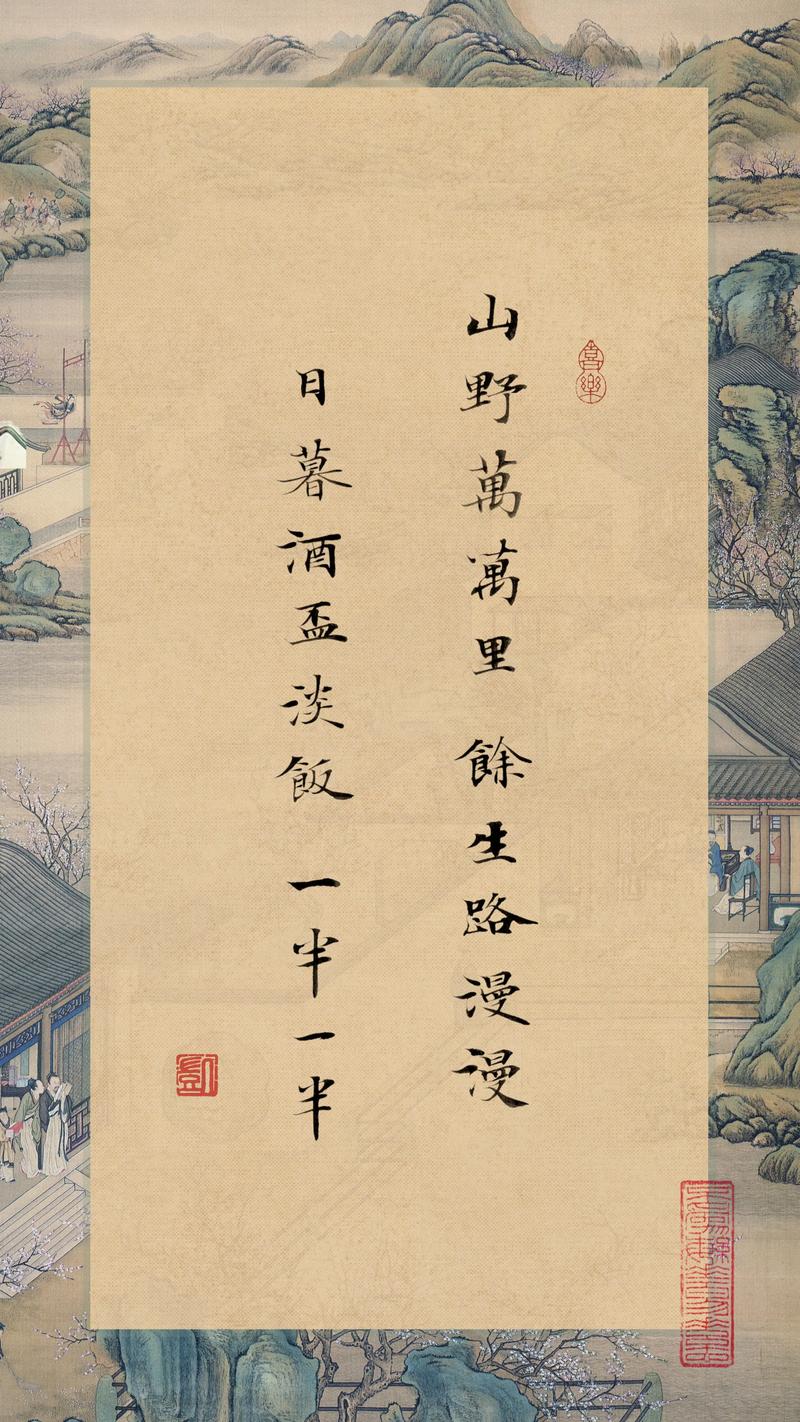 喜樂
山野萬萬里 餘生路漫漫
日暮酒盃淡飯 一半一半